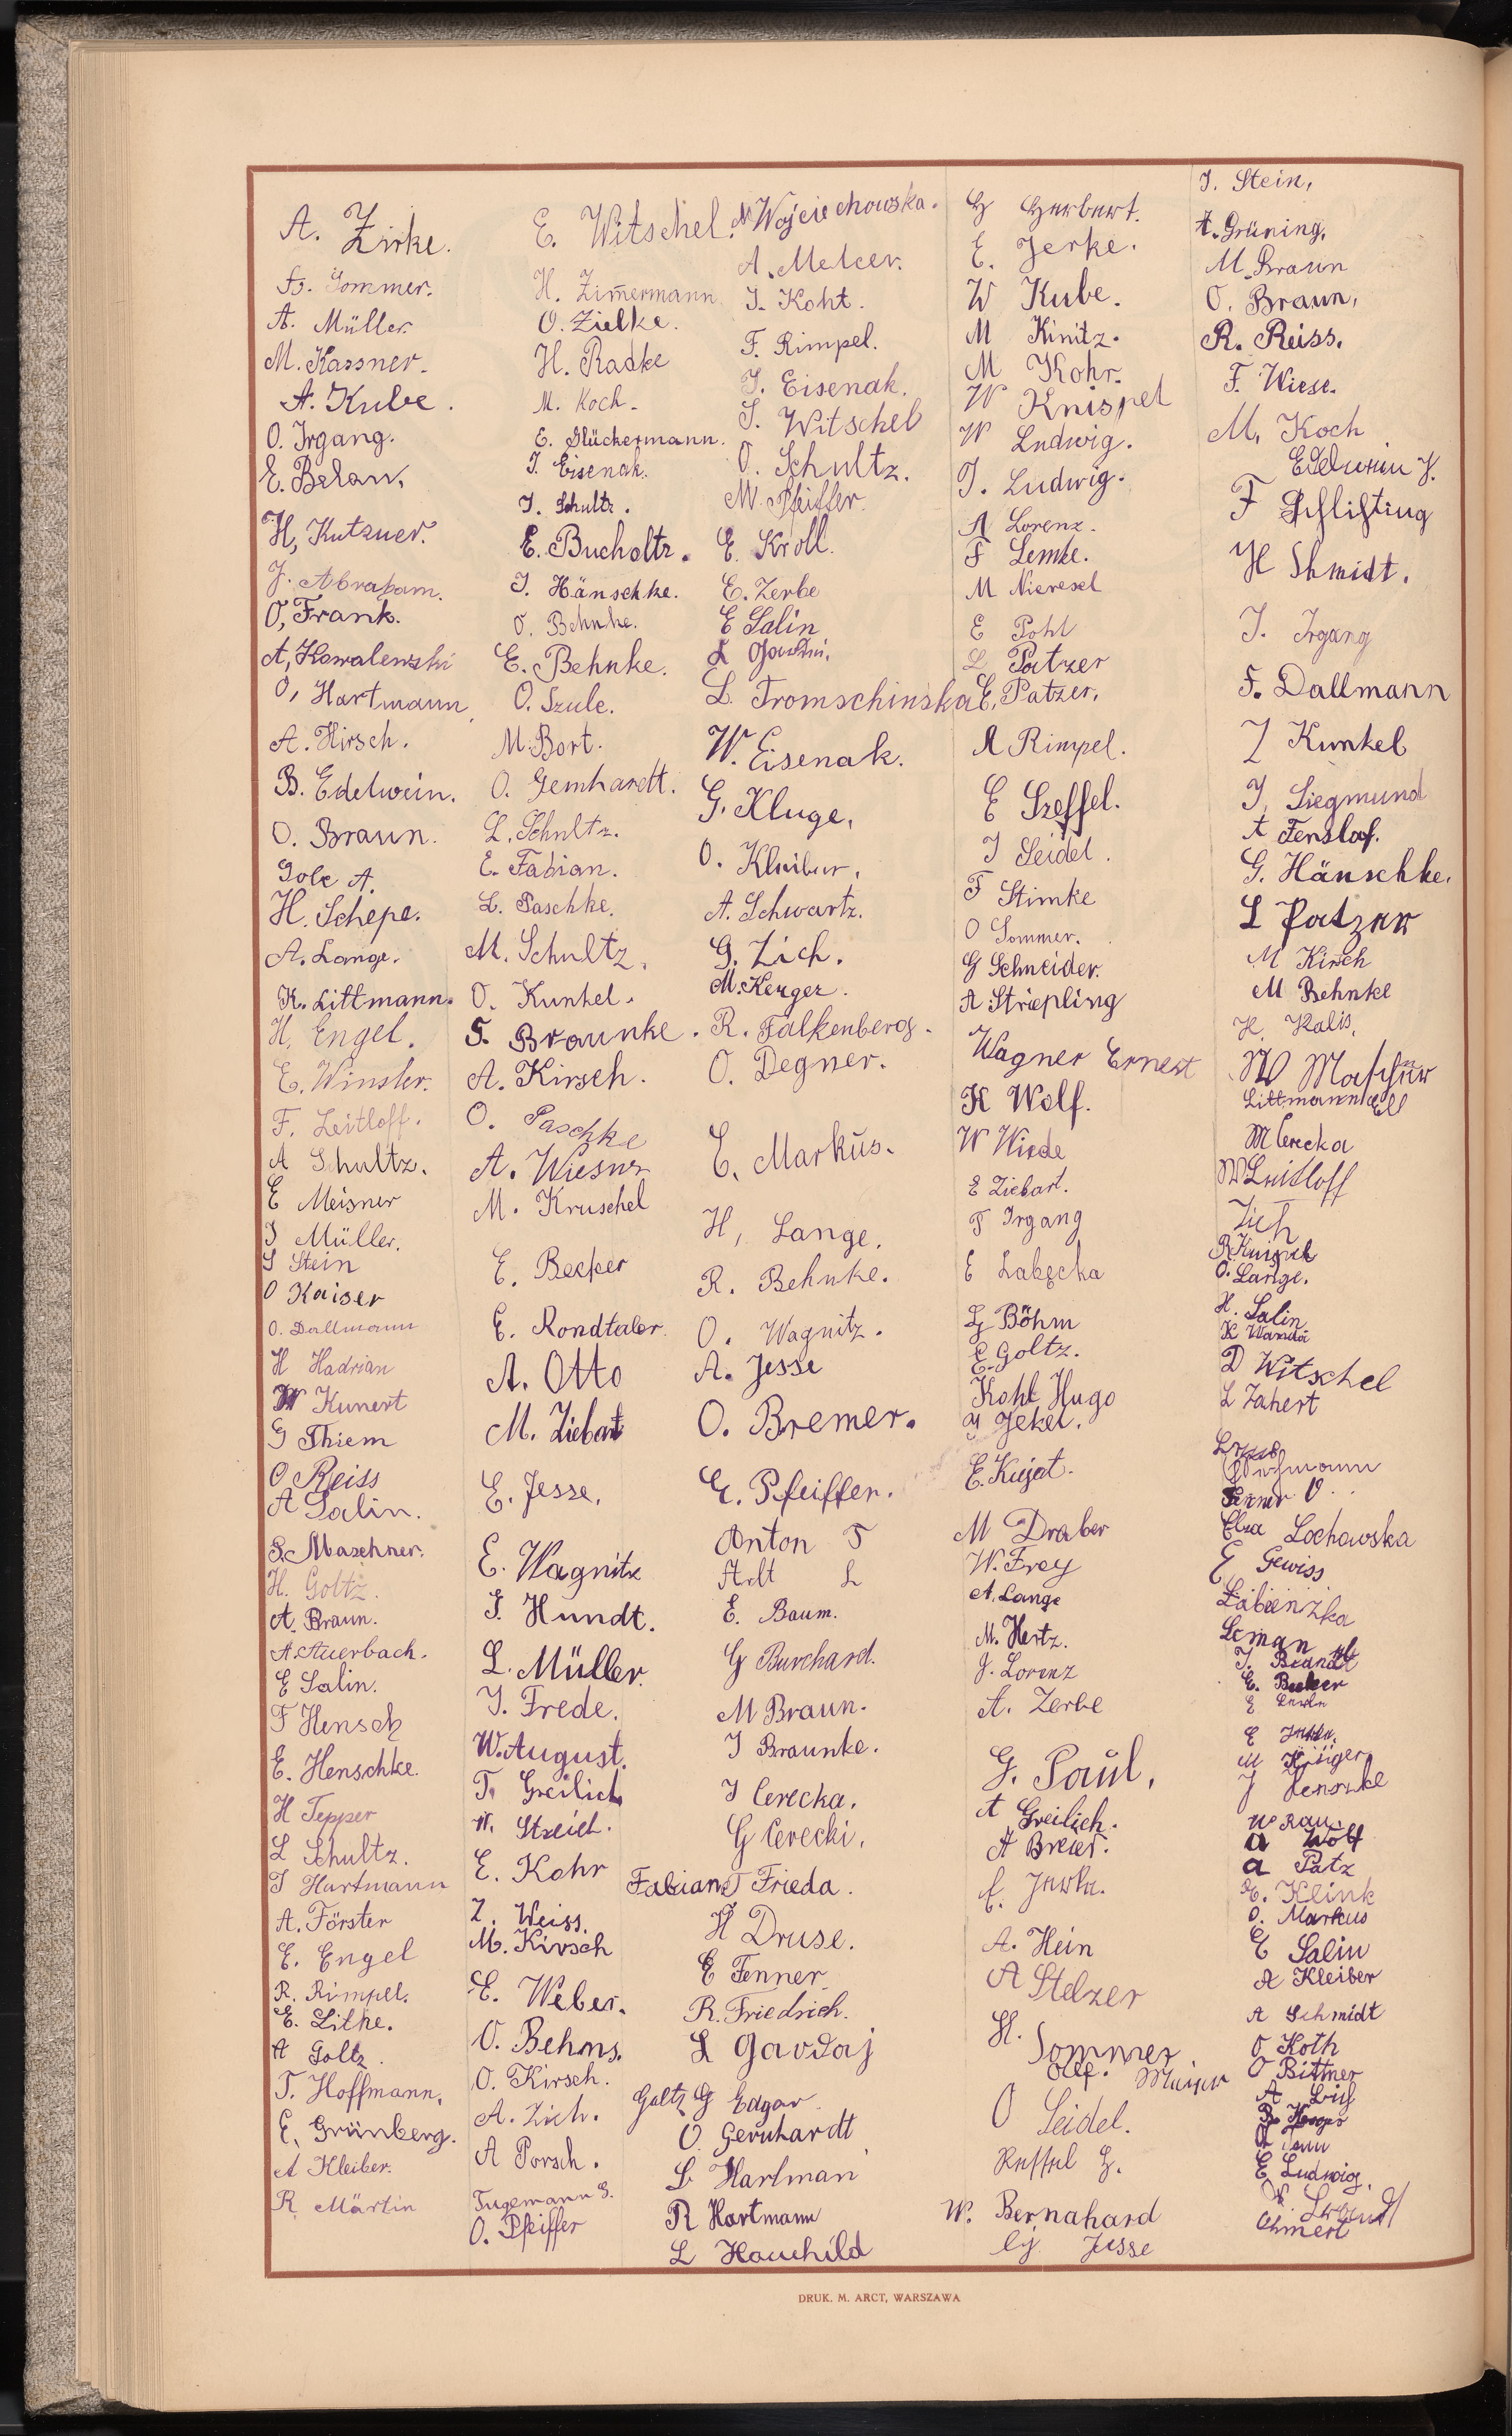 A. Zirke.
Fr. Sommer.
A. Müller.
M. Kassner.
A. Kube.
O. Irgang.
E. Belau.
H. Kutzner.
J. Abraham.
O. Frank.
A. Kowalewski
O. Hartmann
A. Hirsch.
B. Edelwein.
O. Braun.
Golc A.
H. Schepe.
A. Lange.
K. Littmann.
H. Engel.
E. Winsler.
F. Leitloff.
A Schultz.
E Meisner
J Müller.
S Stein
O Kaiser
O. Dallmann
H Hadrian
W Kunert
G Thiem
O Reiss
A Salin.
S. Maschner.
H. Goltz.
A. Braun.
A. Auerbach.
E Salin.
F Hensch
E. Henschke.
H Tepper
L Schultz.
T Hartmann
A. Förster
E. Engel
R. Rimpel.
E. Litke.
A Goltz.
T. Hoffmann.
E. Grünberg.
A Kleiber.
R. Märtin
E. Witschel.
H. Zimermann
O. Zielke.
H. Radke
M. Koch.
E. Glückermann.
J. Eisenak.
J. Schultz.
E. Bucholtz.
J. Hänschke.
O. Behnke.
E. Behnke.
O. Szulc.
M. Bort.
O. Gernhardt.
L. Schultz.
E. Fabian.
L. Paschke.
M. Schultz.
O. Kunkel.
S. Braunke.
A. Kirsch.
O. Paschke
A. Wiesner
M. Kruschel
E. Becker
E. Rondtaler.
A. Otto
M. Ziebart
E. Jesse.
E. Wagnitz
J. Hundt.
L. Müller.
J. Frede.
W. August.
T. Greilich
W. Streich.
E. Kohr
Z. Weiss.
M. Kirsch
E. Weber.
O. Behms.
O. Kirsch.
A. Zich.
A Porsch.
Tugemann G.
O. Pfeiffer
N. Wojciechowska.
A. Melcer.
J. Koht.
F. Rimpel.
J. Eisenak.
S. Witschel
O. Schultz.
M. Pfeiffer.
E. Kroll.
E. Zerbe
E Salin
L. Tromschinska
W. Eisenak.
G. Kluge.
O. Kleiber.
A. Schwartz.
G. Zich.
M. Kenger.
R. Falkenberg.
O. Degner.
E. Markus.
H. Lange.
R. Behnke.
O. Wagnitz.
A. Jesse
O. Bremer.
E. Pfeiffer.
Anton T
Arlt L
E. Baum.
G Burchard.
M Braun.
J Braunke.
J Cerecka.
G Cerecki.
Fabian Frieda.
H Druse.
E Fenner
R. Friedrich.
L Gavdaj
Goltz G Edgar
O Gernhardt
L Hartman
R Hartmann
L Hauchild
G Herbert.
E. Jerke.
W Kube.
M Kinitz.
M Kohr.
W Knispel
W Ludwig.
J. Ludwig.
A Lorenz.
F Lemke.
M Nieresel
E Pohl
L Patzer
E. Patzer.
A Rimpel.
E Szeffel.
J Seidel.
F Stimke
O Sommer.
G Schneider.
A Striepling
Wagner Ernest
K Wolf.
W Wiede
E Ziebart.
T Irgang
E Labęcka
G Böhm
E. Goltz.
Kohl Hugo
Jekel.
E. Kujat.
M Draber
W. Frey
A. Lange
M. Hertz.
J. Lorenz
A. Zerbe
G. Paul.
A Greilich.
A Breier.
A. Hein
A Stelzer
H. Sommer
O Seidel.
W. Bernahard
Jesse
J. Stein.
A. Grüning.
M. Braun
O. Braun.
R. Reiss.
F. Wiese.
M. Koch
Edelwein J.
F Schlichting
H Shmidt.
J. Irgang
F. Dallmann
J Kunkel
J. Siegmund
A Fenslaf.
G. Hänschke.
L Patzer
M Kirsch
M Behnke
H. Kalis.
W Maschner
Littmann Ell
M Cerecka
W Leitloff
Zich
R Knispel
O. Lange.
H. Salin
K Wanda
D Witschel
L Zahert
Elza Lochowska
E Gewiss
Łabienzka
J. Brandt
E. Becker
M Krüger
J Henschke
W Rau.
A Wolf
A Patz
E. Klink
O. Markus
E Salin
A Kleiber
A Schmidt
O Koth
O Bittner
E Ludwig
DRUK. M. ARCT, WARSZAWA